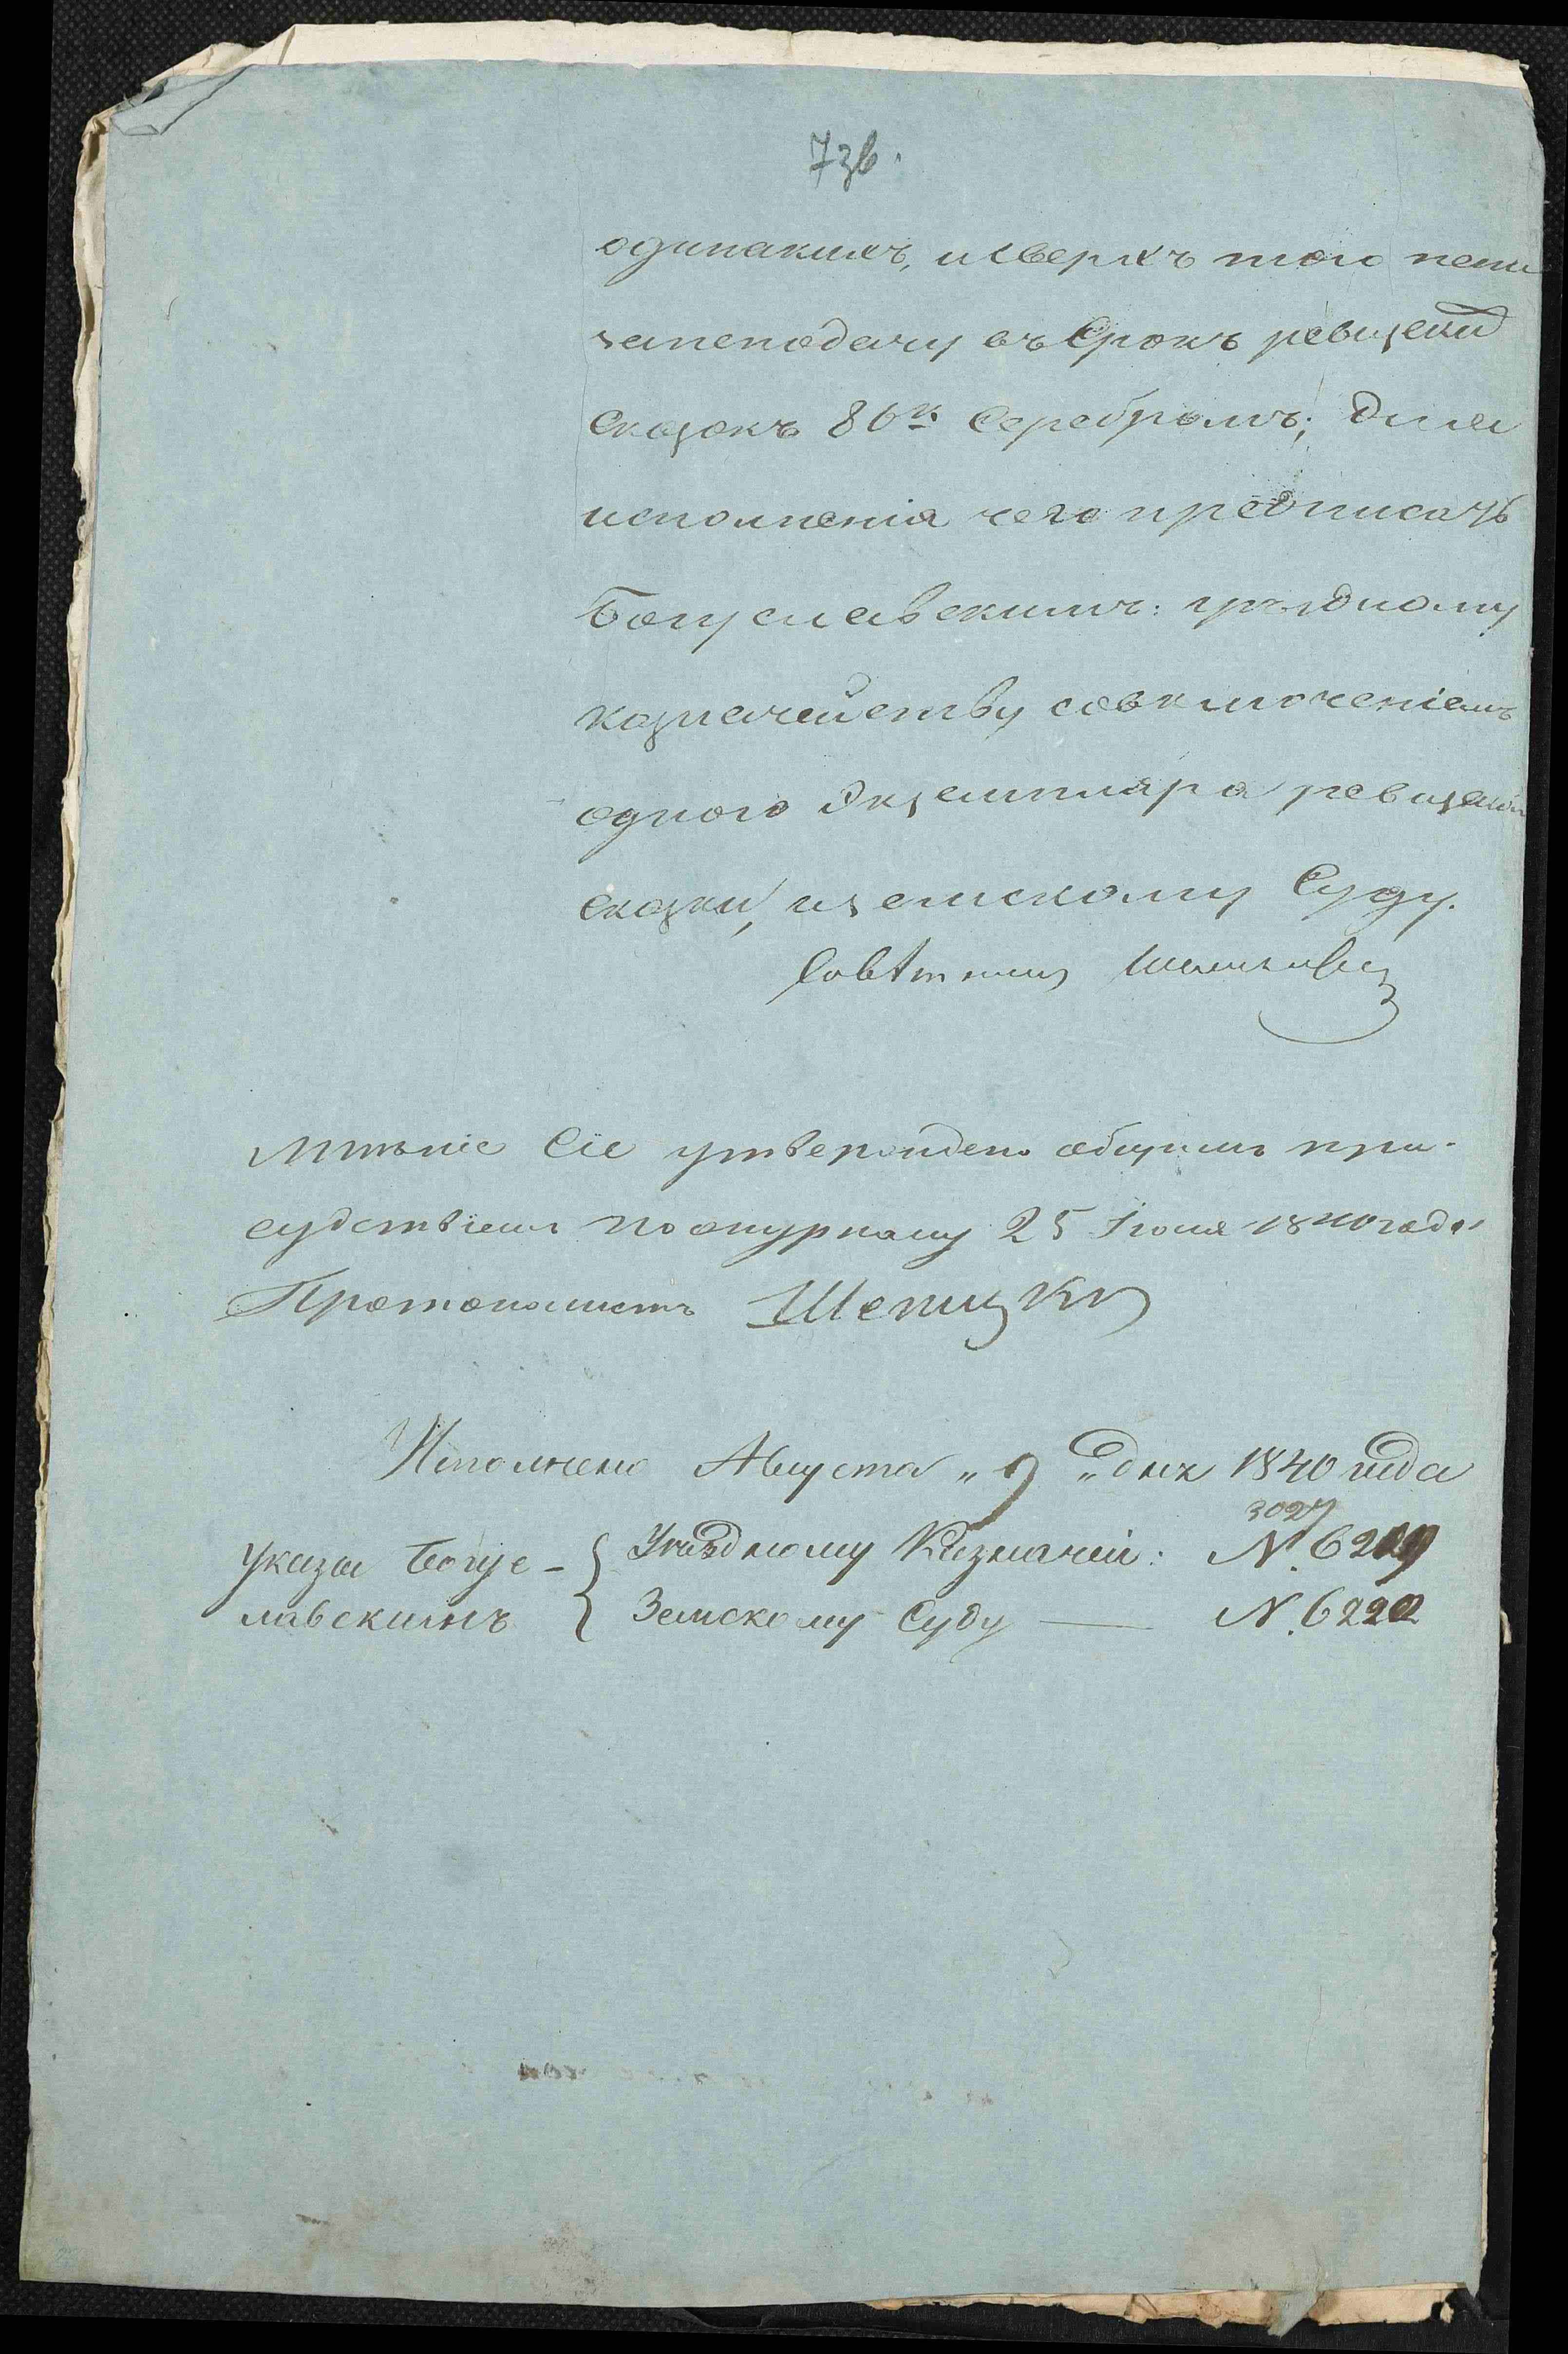 7зв.
одинакихъ, и сверхъ того пени
занеподачу въ срокъ ревизской
сказокъ 86к. серебромъ; для
исполненія чего предписать
Богуславскимъ: уѣздному
казначейству совключеніемъ
одного экземпляра ревизской
сказки, и земскому Суду.
Совѣтникъ
Мнѣніе Сіе утверждено общимъ при-
судствіемъ пожурналу 25 Іюня 1840 года
Протоколистъ
Исполнено Августа „9„ дня 1840 года
3027
Указы Богус- Уѣздному Казначей: N. 6219
лавскимъ Земскому Суду — N. 6220